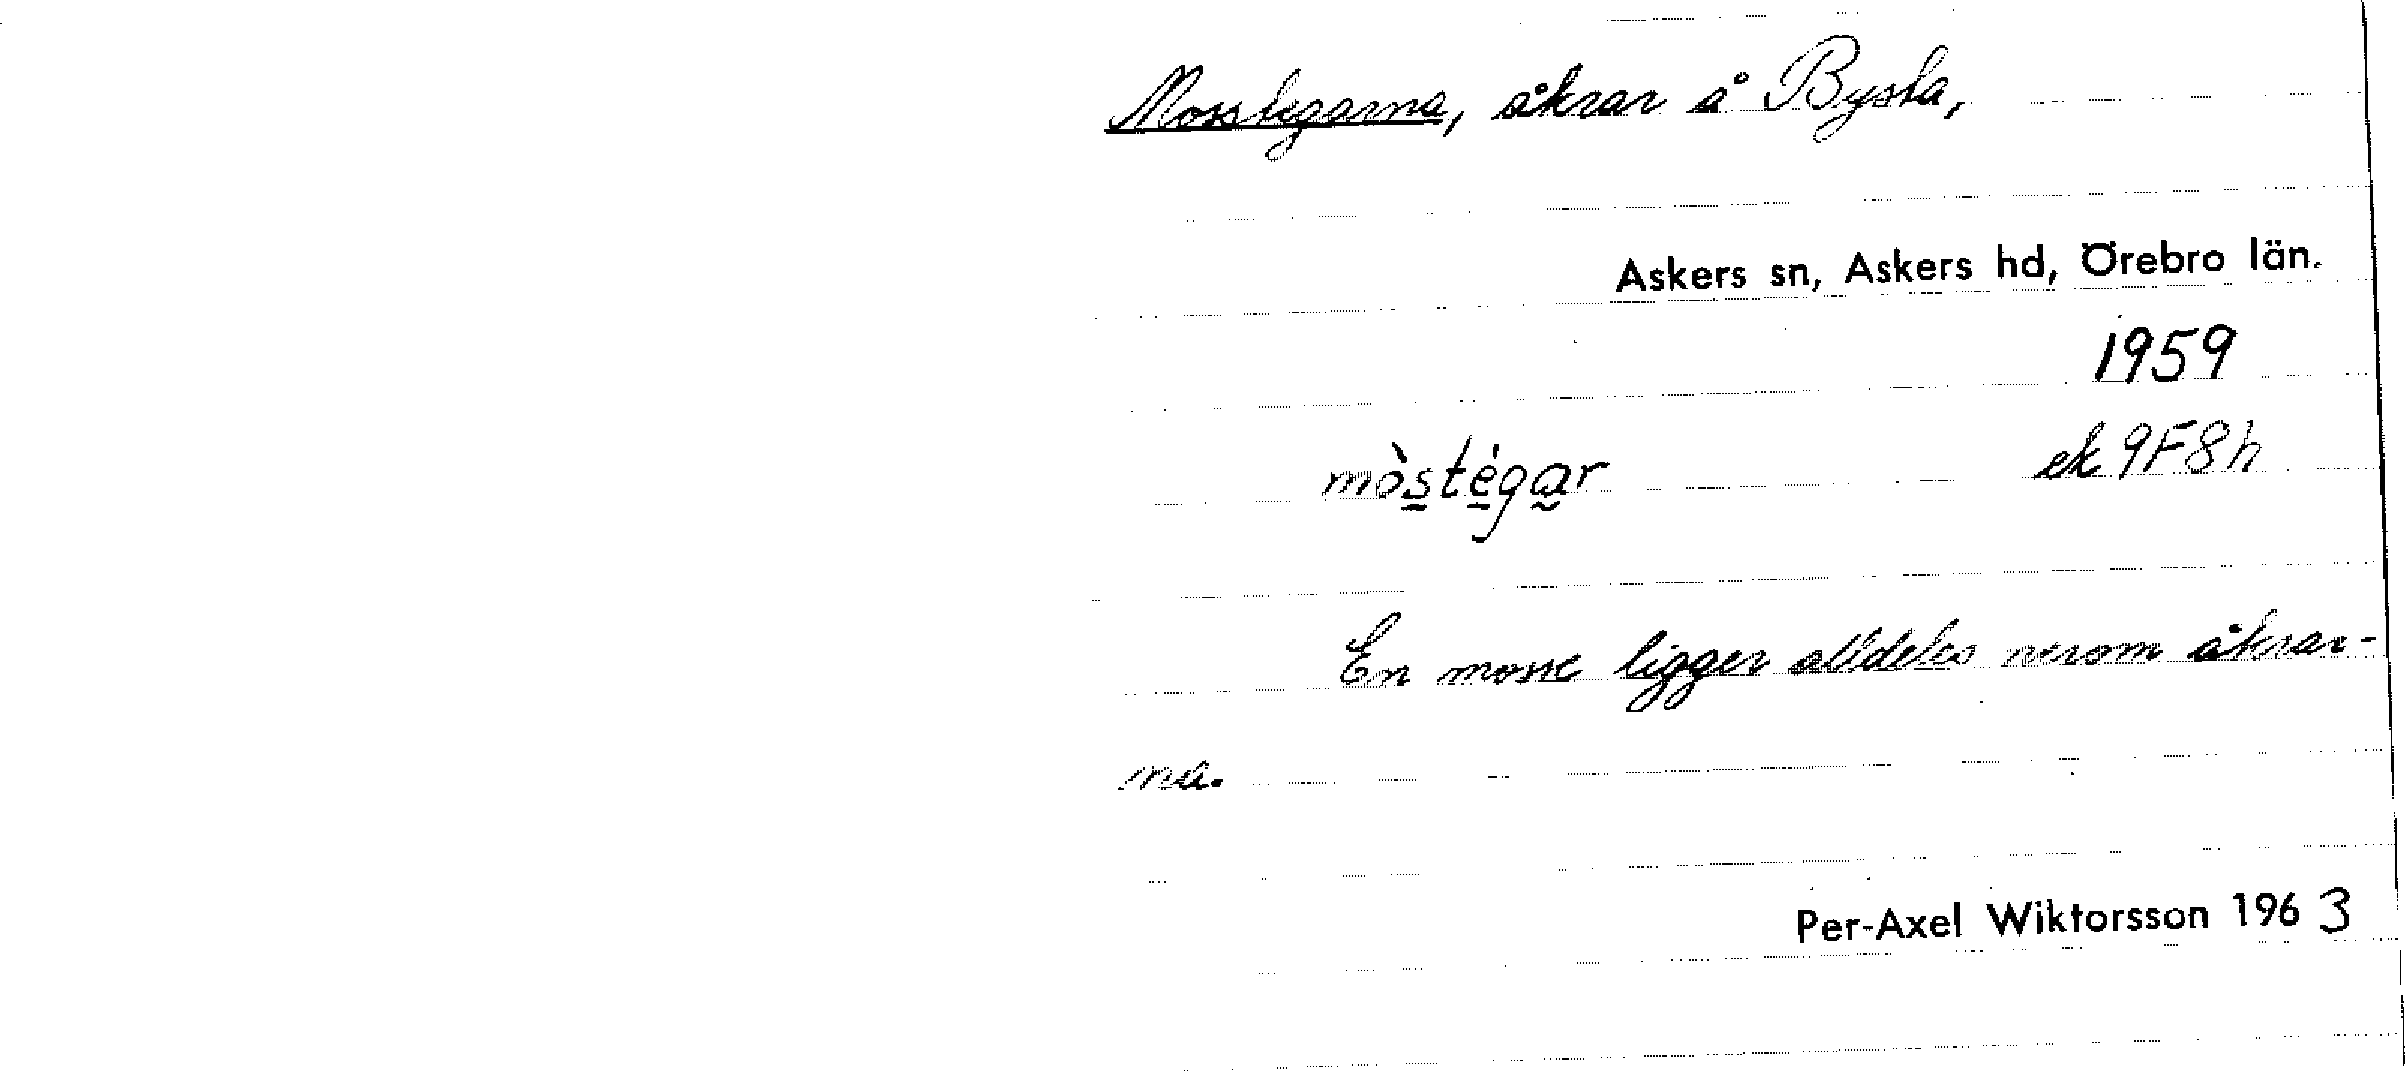 Mosstegarna, åkrar å Bysta,
Askers sn, Askers hd, Örebro län.
1959
mòstégar ek 9F8h
En mosse ligger alldeles nerom åkrar-
na.
Per-Axel Wiktorsson 1963